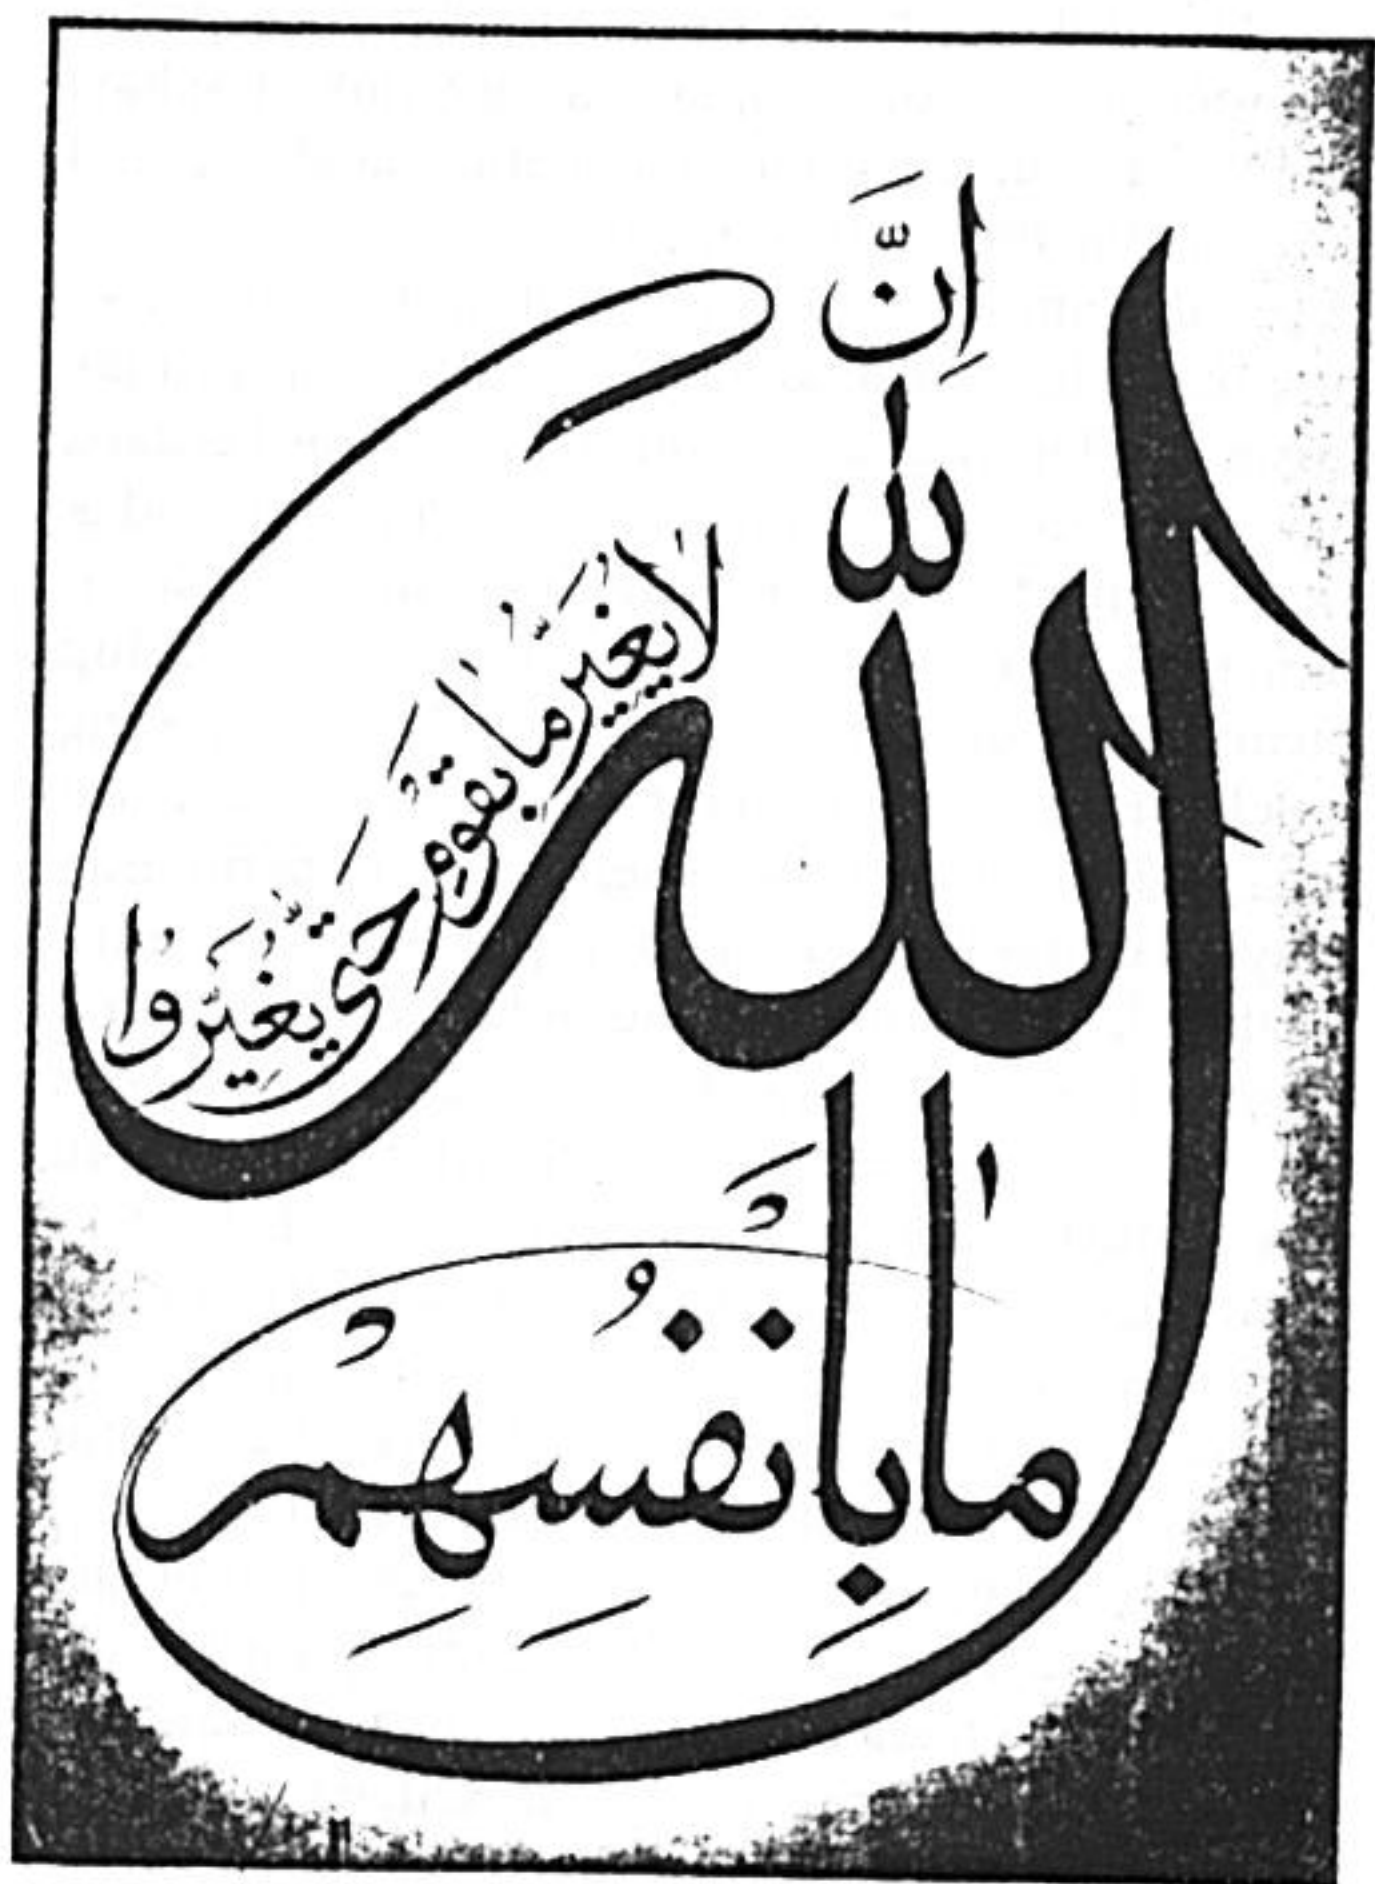 اِنَّ
اللّٰه
لَا يُغَيِّرُ مَا بِقَوْمٍ حَتّٰى يُغَيِّرُوا
مَا بِاَنْفُسِهِمْ